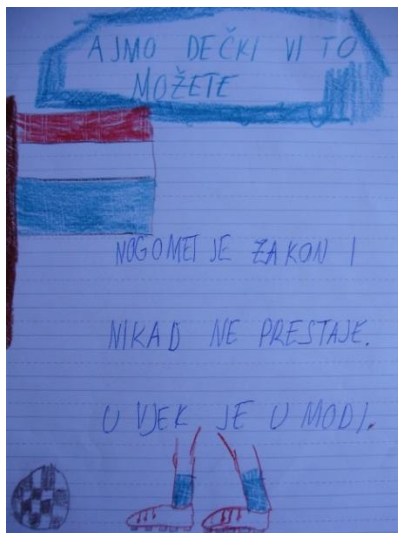 AJMO DEČKI VI TO
MOŽETE
NOGOMET JE ZAKON I
NIKAD NE PRESTAJE.
U VJEK JE U MODI.